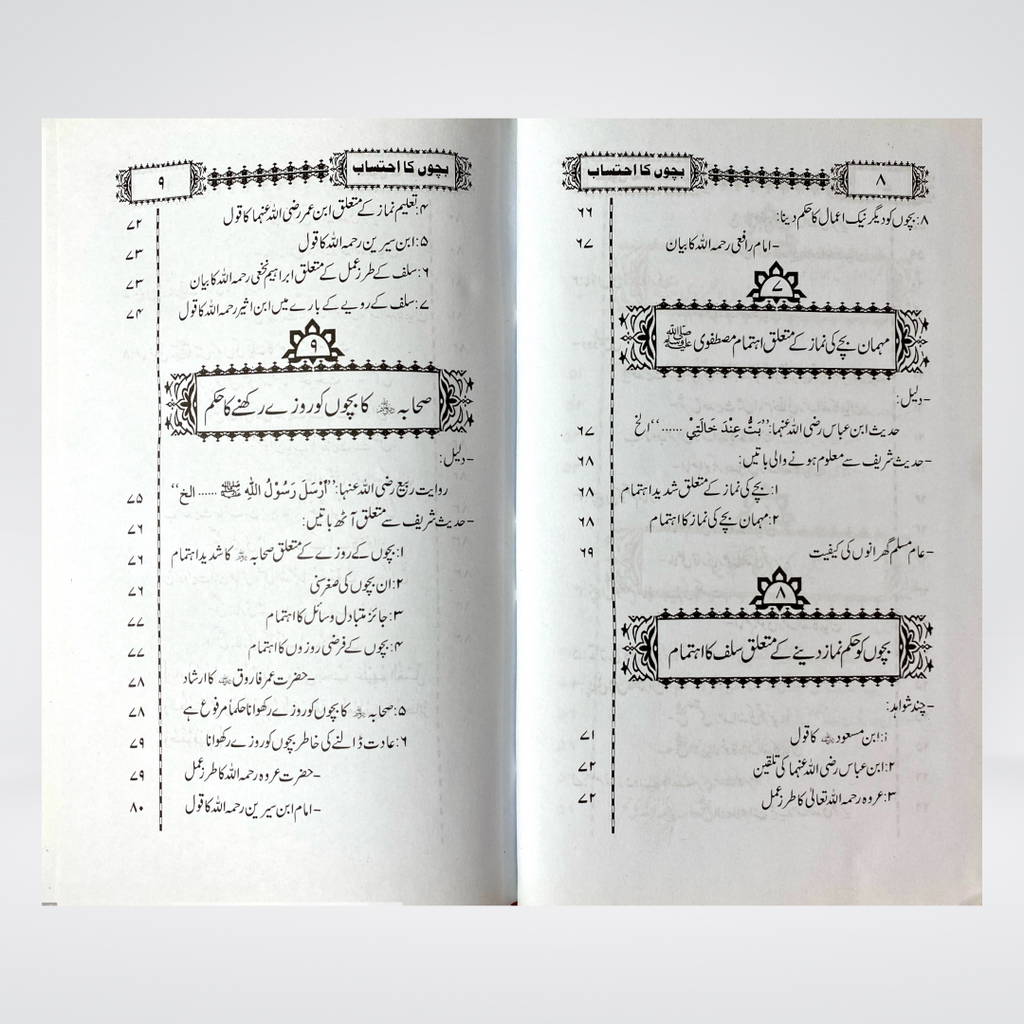 ۸ بچوں کا احتساب
۸: بچوں کو دیگر نیک اعمال کا حکم دینا: ۶۶
-امام رافعی رحمہ اللہ کا بیان ۶۷
۷
مہمان بچے کی نماز کے متعلق اہتمام مصطفوی ﷺ
-دلیل:
حدیث ابن عباس رضی اللہ عنہما: ’’بَتُّ عِنْدَ خَالَتِيْ ......‘‘ الخ ۶۷
-حدیث شریف سے معلوم ہونے والی باتیں: ۶۸
۱: بچے کی نماز کے متعلق شدید اہتمام ۶۸
۲: مہمان بچے کی نماز کا اہتمام ۶۸
-عام مسلم گھرانوں کی کیفیت ۶۹
۸
بچوں کو حکم نماز دینے کے متعلق سلف کا اہتمام
-چند شواہد:
۱: ابن مسعود رضی اللہ عنہ کا قول ۷۱
۲: ابن عباس رضی اللہ عنہما کی تلقین ۷۲
۳: عروہ رحمہ اللہ تعالیٰ کا طرز عمل ۷۲
بچوں کا احتساب ۹
۴: تعلیم نماز کے متعلق ابن عمر رضی اللہ عنہما کا قول ۷۲
۵: ابن سیرین رحمہ اللہ کا قول ۷۳
۶: سلف کے طرز عمل کے متعلق ابراہیم نخعی رحمہ اللہ کا بیان ۷۳
۷: سلف کے رویے کے بارے میں ابن اثیر رحمہ اللہ کا قول ۷۴
۹
صحابہ رضی اللہ عنہم کا بچوں کو روزے رکھنے کا حکم
-دلیل:
روایت ربیع رضی اللہ عنہا: ’’أَرْسَلَ رَسُوْلُ اللّٰهِ ﷺ ...... الخ‘‘ ۷۵
-حدیث شریف سے متعلق آٹھ باتیں: ۷۶
۱: بچوں کے روزے کے متعلق صحابہ رضی اللہ عنہم کا شدید اہتمام ۷۶
۲: ان بچوں کی صغر سنی ۷۶
۳: جائز متبادل وسائل کا اہتمام ۷۷
۴: بچوں کے فرضی روزوں کا اہتمام ۷۷
-حضرت عمر فاروق رضی اللہ عنہ کا ارشاد ۷۸
۵: صحابہ رضی اللہ عنہم کا بچوں کو روزے رکھوانا حکماً مرفوع ہے ۷۸
۶: عادت ڈالنے کی خاطر بچوں کو روزے رکھوانا ۷۹
-حضرت عروہ رحمہ اللہ کا طرز عمل ۷۹
-امام ابن سیرین رحمہ اللہ کا قول ۸۰